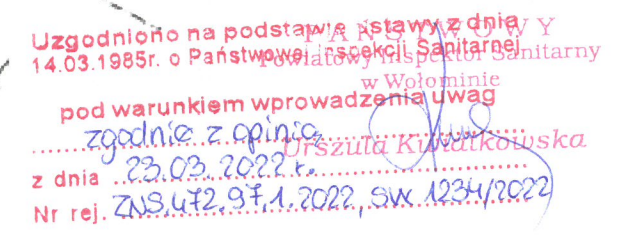 Uzgodniono na podstawie ustawy z dnia
14.03.1985r. o Państwowej Inspekcji Sanitarnej
pod warunkiem wprowadzenia uwag
zgodnie z opinią
z dnia 23.03.2022 r.
Nr rej. ZNS.472.97.1.2022, SW 1234/2022
PAŃSTWOWY
Powiatowy Inspektor Sanitarny
w Wołominie
Urszula Kwiatkowska